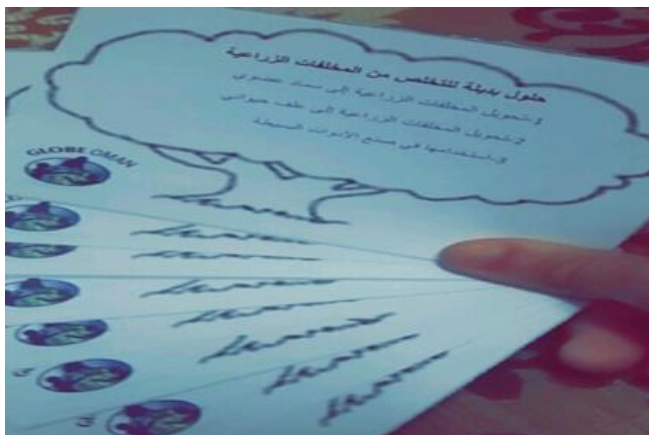 حلول بديلة للتخلص من المخلفات الزراعية
1-تحويل المخلفات الزراعية إلى سماد عضوي
2-تحويل المخلفات الزراعية إلى علف حيواني
3-استخدامها في صنع الأدوات البسيطة
GLOBE OMAN